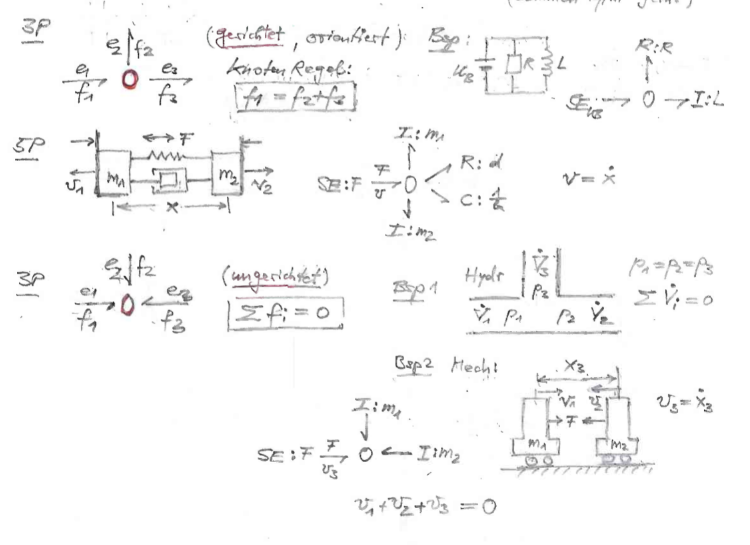 3P
e₂ f₂
(gerichtet, orientiert)
e₁
f₁
O
e₃
f₃
Knoten Regel:
f₁ = f₂ + f₃
Bsp:
U_B
R
L
R:R
SE:U_B
O
I:L
5P
F
v₁
m₁
m₂
v₂
x
I:m₁
SE:F
F
v
O
R:d
C:1/k
I:m₂
v = ẋ
3P
e₂ f₂
e₁
f₁
O
e₃
f₃
(ungerichtet)
Σ fᵢ = 0
Bsp1
Hydr
V̇₃
p₃
V̇₁ p₁
p₂ V̇₂
p₁=p₂=p₃
Σ V̇ᵢ = 0
Bsp2 Mech:
x₃
v₁
v₂
F
m₁
m₂
v₃ = ẋ₃
I:m₁
SE:F
F
v₃
O
I:m₂
v₁+v₂+v₃ = 0